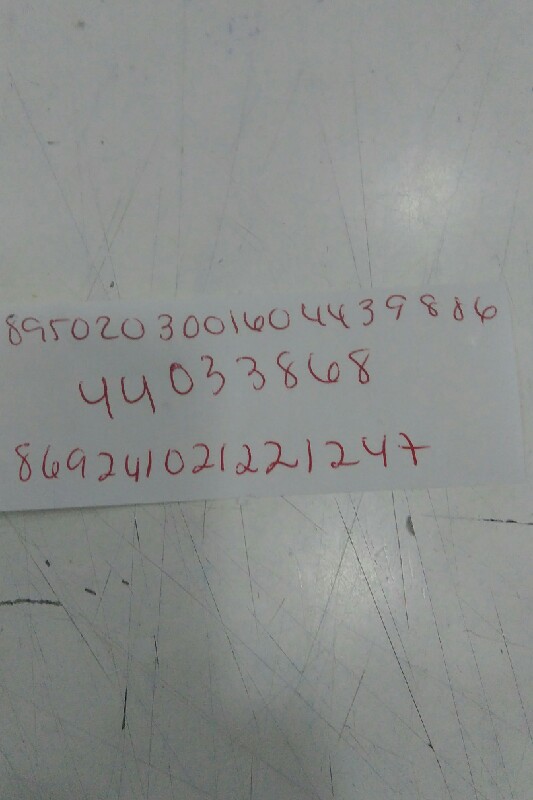 8950203001604439886
44033868
869241021221247